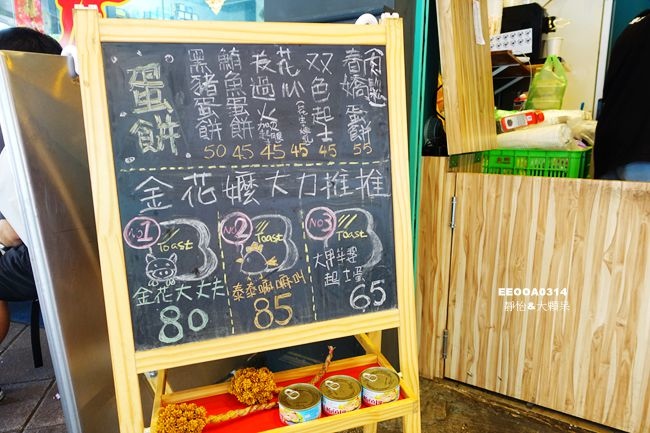 蛋餅
黑豬蛋餅 50
鮪魚蛋餅 45
技過人 45
花心 45
双色起士 45
春嬌蛋餅 55
金花嬤大力推推
NO.1
Toast
金花大丈夫
80
NO.2
Toast
泰泰嘛嘛叫
85
NO.3
Toast
大甲芋翠
起士蛋
65
EEOOA0314
靜怡&大顆呆